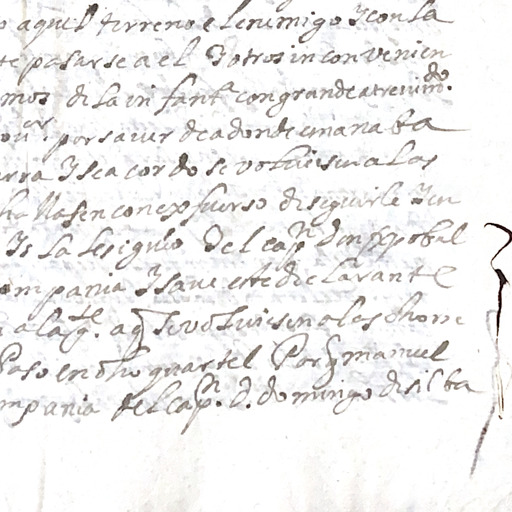 aquel terreno el enemigo y con la
te pasarse a el y otros in convenien
mos de la infanta. con grande atrevimdo.
por saver de adonde emanaba
rra y se acordo se volviesen a las
hallasen con exfuerso de seguirle y en
la le siguio del capn
ompania y save este declarante
a la ge. a q se volviesen a las
Paso en dho quartel Por q manuel
mpania del capn. d. domingo de silba